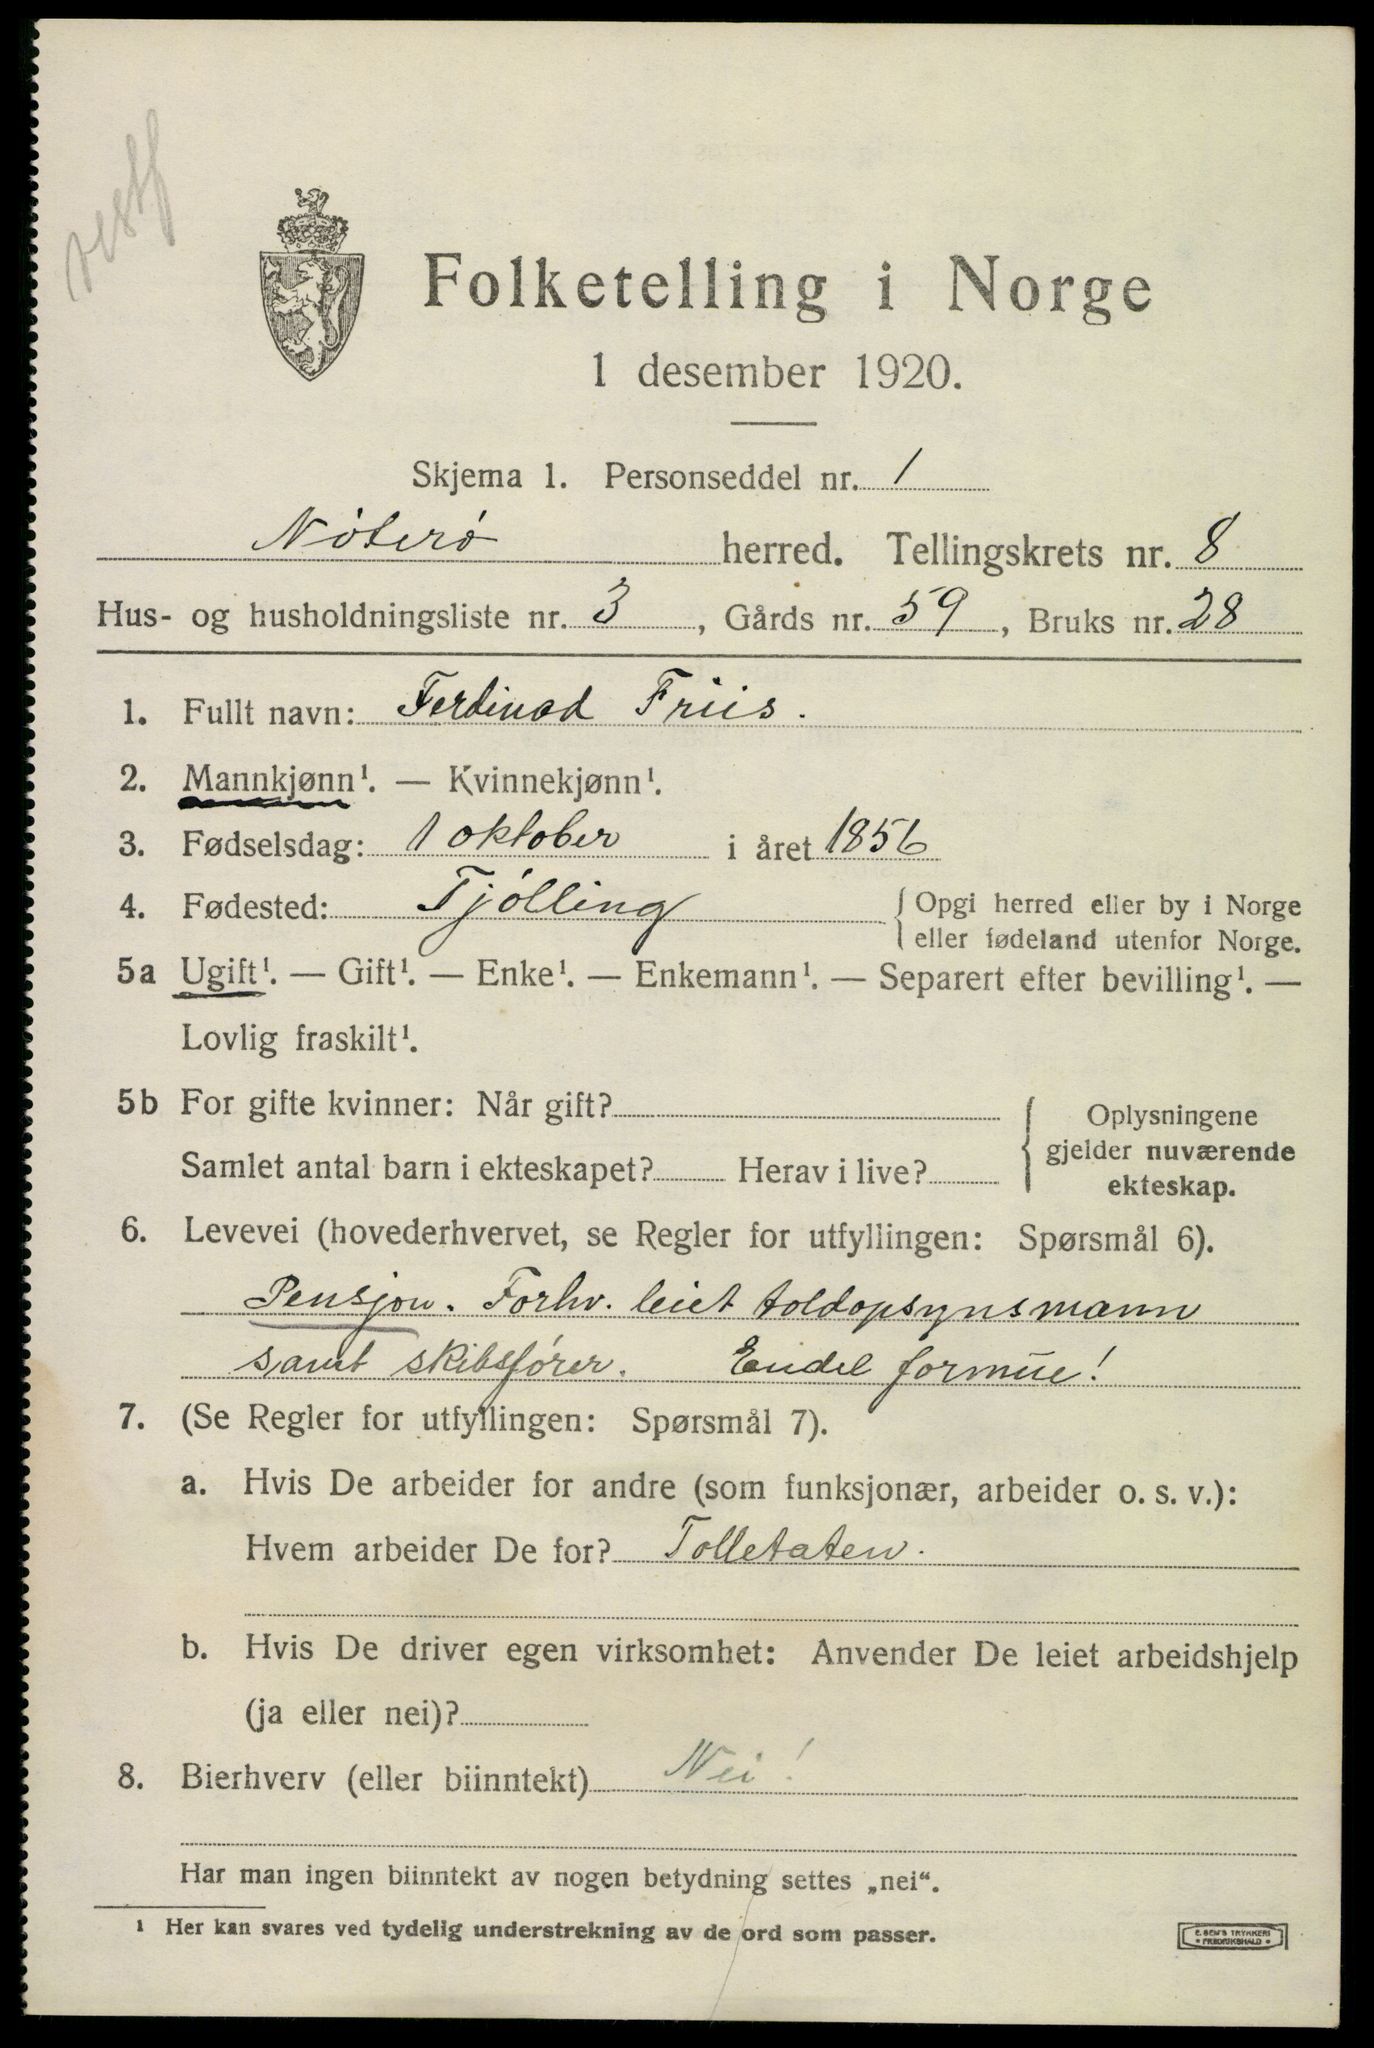 vestf
Folketelling i Norge
1 desember 1920.
Skjema 1. Personseddel nr. 1
Nöterö herred. Tellingskrets nr. 8
Hus- og husholdningsliste nr. 3, Gårds nr. 59, Bruks nr. 28
1. Fullt navn: Ferdinad Friis.
2. Mannkjønn¹. — Kvinnekjønn¹.
3. Fødselsdag: 1 oktober i året 1856
4. Fødested: Tjölling { Opgi herred eller by i Norge
eller fødeland utenfor Norge.
5a Ugift¹. — Gift¹. — Enke¹. — Enkemann¹. — Separert efter bevilling¹. —
Lovlig fraskilt¹.
5b For gifte kvinner: Når gift?
Samlet antal barn i ekteskapet? Herav i live?
{ Oplysningene
gjelder nuværende
ekteskap.
6. Levevei (hovederhvervet, se Regler for utfyllingen: Spørsmål 6).
Pensjon. Forhv. leiet toldopsynsmann
samt skibsfører. Endel formue!
7. (Se Regler for utfyllingen: Spørsmål 7).
a. Hvis De arbeider for andre (som funksjonær, arbeider o. s. v.):
Hvem arbeider De for? Tolletaten.
b. Hvis De driver egen virksomhet: Anvender De leiet arbeidshjelp
(ja eller nei)?
8. Bierhverv (eller biinntekt) Nei!
Har man ingen biinntekt av nogen betydning settes „nei“.
¹ Her kan svares ved tydelig understrekning av de ord som passer.
E. SEM'S TRYKKERI
• FREDRIKSHALD •